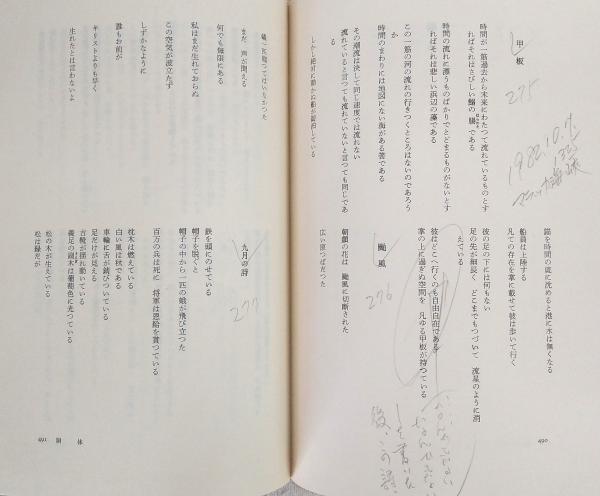 甲板
時間が一筋過去から未来にわたつて流れているものとす
ればそれはさびしい鰯の腸である
時間の流れに漂うものばかりでとどまるものがないとす
ればそれは悲しい浜辺の藻である
この一筋の河の流れの行きつくところはないのであろう
か
時間のまわりには地図にない海がある筈である
その潮流は決して同じ速度では流れない
流れていると言つても流れていないと言つても同じであ
る
しかし絶対に動かぬ船が碇泊している
275
1982.10.
錨を時間の底に沈めると港に水は無くなる
船員は上陸する
凡ての存在を掌に載せて彼は歩いて行く
彼の足の下には何もない
足の先が細長く どこまでもつづいて 流星のように消
えている
彼はどこへ行くのも自由自在である
掌の上に過ぎぬ空間を 凡ゆる甲板が持つている
颱風
276
朝顔の花は 颱風に切断された
広い原つぱだつた
490
蟻一匹這つてはいなかつた
まだ 声が聞える
何でも無限にある
私はまだ生れておらぬ
この空気が波立たず
しずかなように
誰もお前が
キリストよりも早く
生れたとは言わないよ
九月の詩
277
鉄を頭にのせている
帽子を脱ぐと
帽子の中から一匹の蛾が飛び立つた
百万の兵は死に 将軍は恩給を貰つている
枕木は燃えている
白い風は秋である
車輪に舌が錆びついている
足だけが見える
古靴が揺れ動いている
義足の踵木は葡萄色に光つている
松の木が生えている
松は緑だが
491